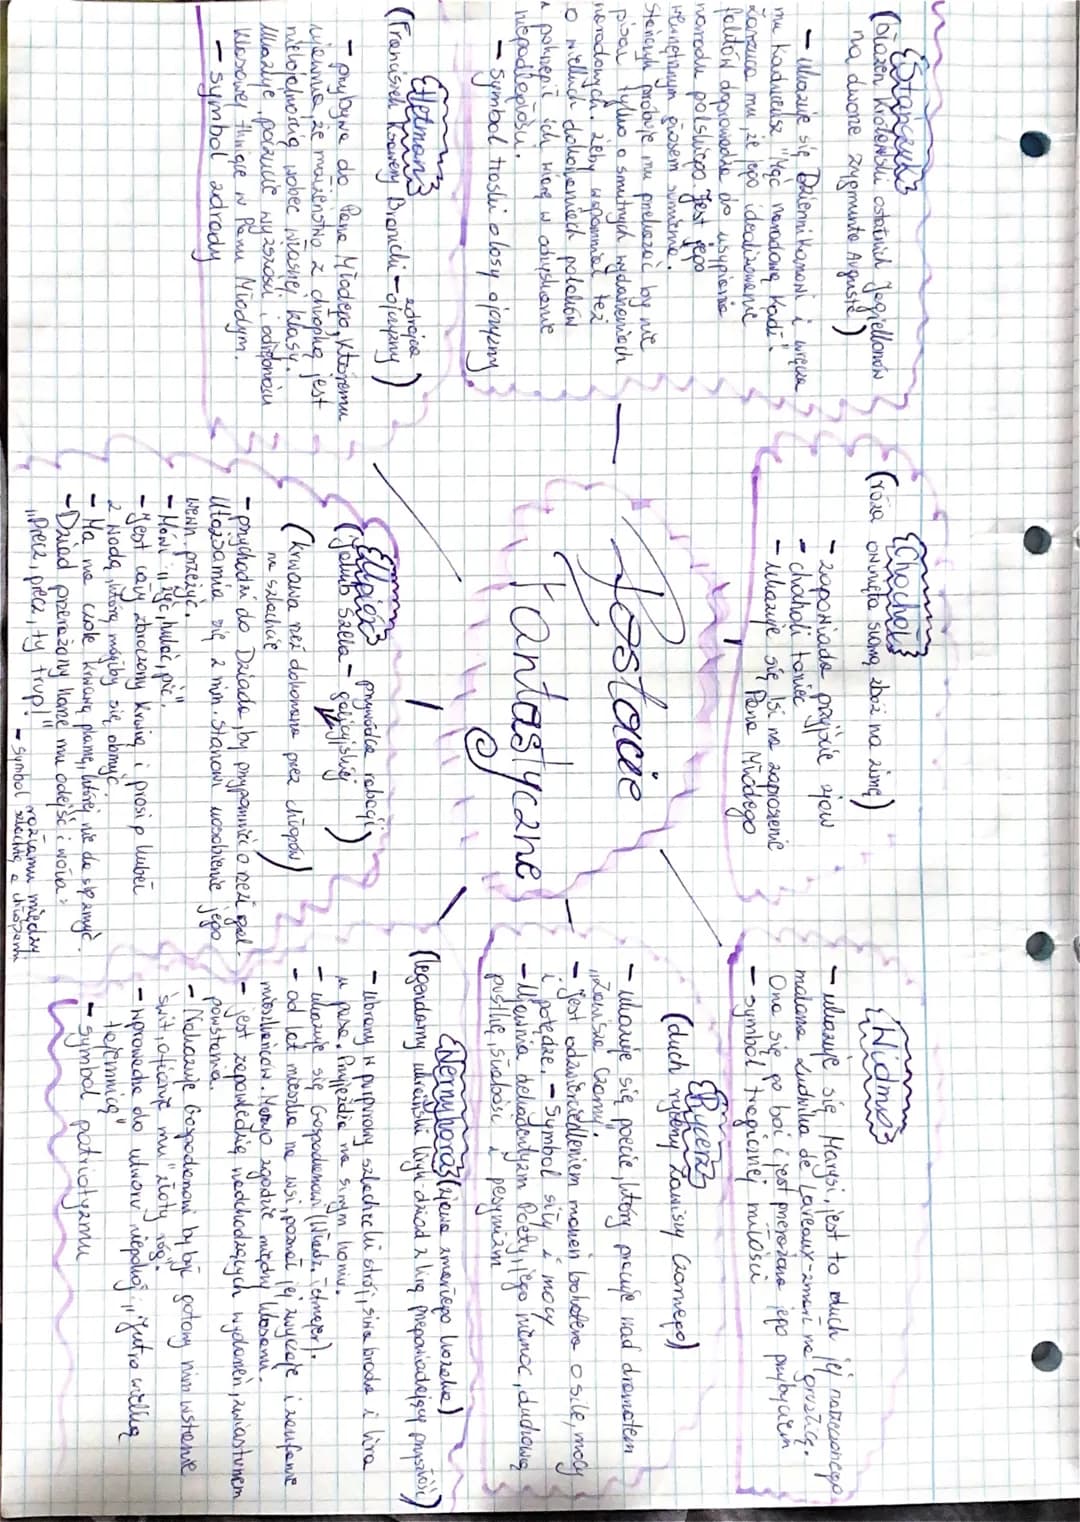 Postacie
Fantastyczne
{Stańczyk}
(błazen królewski ostatnich Jagiellonów
na dworze Zygmunta Augusta)
- ukazuje się Dziennikarzowi i wręcza
mu kaduceusz "Mąć narodową Kadź".
Zarzuca mu, że jego idealizowanie
faktów doprowadza do usypiania
narodu polskiego. Jest jego
wewnętrznym głosem sumienia.
Stańczyk próbuje mu przekazać by nie
pisał tylko o smutnych wydarzeniach
narodowych, żeby wspomniał też
o wielkich dokonaniach polaków
i pokrzepić ich wiarę w odzyskanie
niepodległości.
- symbol troski o losy ojczyzny
{Chochoł}
(róża owinięta słomą zbóż na zimę)
- zapowiada przyjście zjaw
- chocholi taniec
- ukazuje się Isi na zaproszenie
Pana Młodego
{Widmo}
- ukazuje się Marysi, jest to duch jej narzeczonego
malarza Ludwika de Laveaux - zmarł na gruźlicę.
Ona się go boi i jest przerażona jego przybyciem
- symbol tragicznej miłości
{Rycerz}
(duch rycerza Zawiszy Czarnego)
- ukazuje się poecie, który pracuje nad dramatem
„Zawisza Czarny".
- Jest odzwierciedleniem marzeń bohatera o sile, mocy
i potędze. - Symbol siły i mocy
- Ujawnia dekadentyzm Poety, jego niemoc, duchową
pustkę, słabości i pesymizm
{Hetman}
(Franciszek Ksawery Branicki - zdrajca
ojczyzny)
- przybywa do Pana Młodego, któremu
że małżeństwo z chłopką jest
nielojalnością wobec własnej klasy.
Ukazuje poczucie wyższości i odrębności
klasowej tkwiące w Panu Młodym.
- symbol zdrady
{Upiór}
(Jakub Szela - przywódca rabacji
galicyjskiej)
(krwawa rzeź dokonana przez chłopów
na szlachcie)
- przychodzi do Dziada, by przypomnieć o rzezi gal-
Utożsamia się z nim. Stanowi uosobienie jego
wewn. przeżyć.
- Mówi „żyć, hulać, pić".
- Jest cały zbroczony krwią i prosi o kubeł
z wodą, którą mógłby się obmyć.
- Ma na czole krwawą plamę, której nie da się zmyć.
- Dziad przerażony każe mu odejść i woła:
„Precz, precz, ty trup!" - symbol rozłamu między
szlachtą a chłopami
{Wernyhora} (zjawa zmarłego kozaka)
(legendarny ukraiński lirnik - dziad z lirą przepowiadający przyszłość)
- ubrany w purpurowy szlachecki strój, siwa broda i lira
u pasa. Przyjeżdża na siwym koniu.
- ukazuje się Gospodarzowi (Włodz. Tetmajer).
- od lat mieszka na wsi, poznał jej zwyczaje i zaufanie
mieszkańców. Marzy o zgodzie między klasami.
- jest zapowiedzią nadchodzących wydarzeń, zwiastunem
powstania.
- Nakazuje Gospodarzowi by być gotowy nim wstanie
świt, ofiaruje mu "złoty róg".
- wprowadza do utworu niepokój „jutro wielką
tajemnicą"
- symbol patriotyzmu